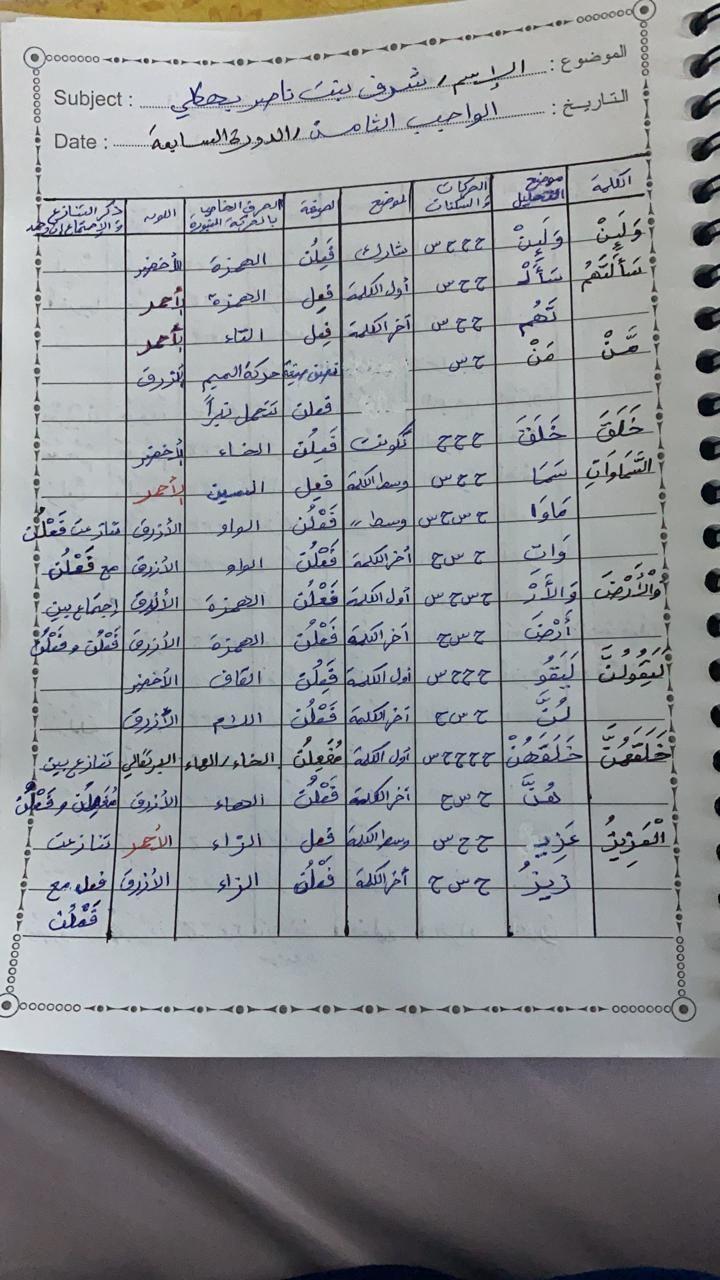 الموضوع : الإسم / شرف بنت ناصر
Subject :
التاريخ : الواجب الثامن / الدورة السابعة
Date :
الكلمة موضع التحليل الحركات والسكنات الموضع الصيغة الحرف الخاص بالحركة المنبورة اللون ذكر التنازع والاجتماع إن وجد
وَلَئِنْ وَلَئِنْ ح ح ح س تشارك فَعِلُن الهمزة الأخضر
سَأَلْتَهُم سَأَلْـ ح ح س أول الكلمة فعل الهمزة الأحمر
تَهُم ح ح س آخر الكلمة فعل التاء الأحمر
مَّنْ مَنْ ح س نصف صيغة حركة الميم الأزرق
فعلن تتحمل نبراً
خَلَقَ خَلَقَ ح ح ح تكونت فَعِلُن الخاء الأخضر
السَّمَاوَاتِ سَمَا ح ح س وسط الكلمة فعل السين الأحمر
مَاوَا ح س ح س وسط // فَعْلُن الواو الأزرق تنازعت فَعْلُن
وَاتِ ح س ح آخر الكلمة فَعْلُن الواو الأزرق مع فَعْلُن
وَالْأَرْضَ وَالْأَرْ ح س ح س أول الكلمة فَعْلُن الهمزة الأزرق إجتماع بين
أَرْضَ ح س ح آخر الكلمة فَعْلُن الهمزة الأزرق فَعْلُن و فَعْلُن
لَيَقُولُنَّ لَيَقُو ح ح ح س أول الكلمة فَعِلُن القاف الأخضر
لُنَّ ح س ح آخر الكلمة فَعْلُن اللام الأزرق
خَلَقَهُنَّ خَلَقَهُنْ ح ح ح ح س أول الكلمة الخاء / الهاء البرتقالي تنازع بين
هُنَّ ح س ح آخر الكلمة فَعْلُن الهاء الأزرق و فَعْلُن
الْعَزِيزُ عَزِيـ ح ح س وسط الكلمة فعل الزاء الأحمر تنازعت
زِيزُ ح س ح آخر الكلمة فَعْلُن الزاء الأزرق فعل مع
فَعْلُن